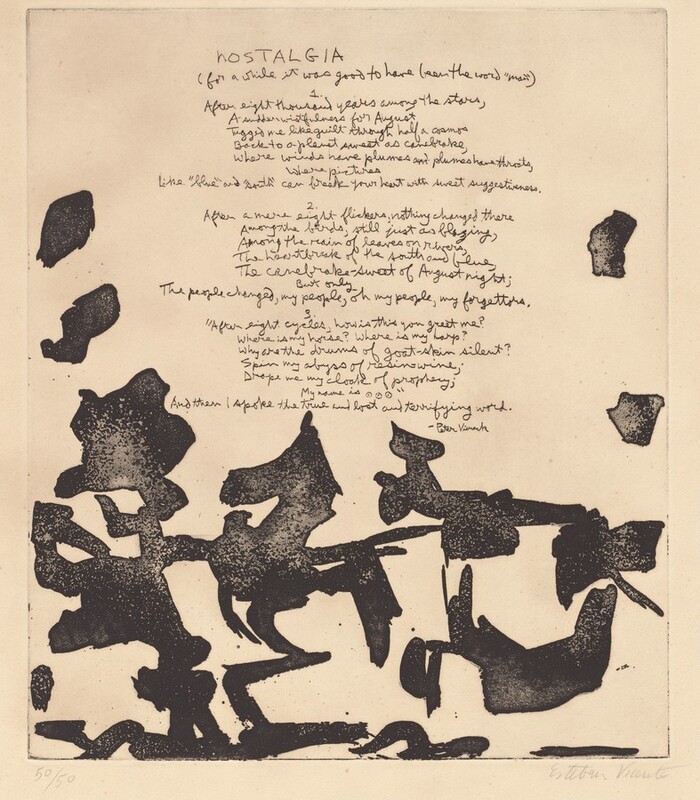 NOSTALGIA
(for a while it was good to have been the word "man")
1.
After eight thousand years among the stars,
A sudden wistfulness for August
Tugged me like guilt through half a cosmos
Back to a planet sweet as canebrake,
Where winds have plumes and plumes have throats,
Where pictures
Like "blue" and "south" can break your heart with sweet suggestiveness.
2.
After a mere eight flickers, nothing changed there
Among the birds, still just as blazing,
Among the rain of leaves on rivers,
The heartbreak of the south and blue,
The canebrake-sweet of August night;
But only
The people changed, my people, oh my people, my forgettors.
3.
"After eight cycles, how is this you greet me?
Where is my horse? Where is my harp?
Why are the drums of goat-skin silent?
Spin my abyss of resin-wine;
Drape me my cloak of prophecy;
My name is ...
And then I spoke the true and lost and terrifying word.
- Peter Viereck
50/50
Esteban Vicente